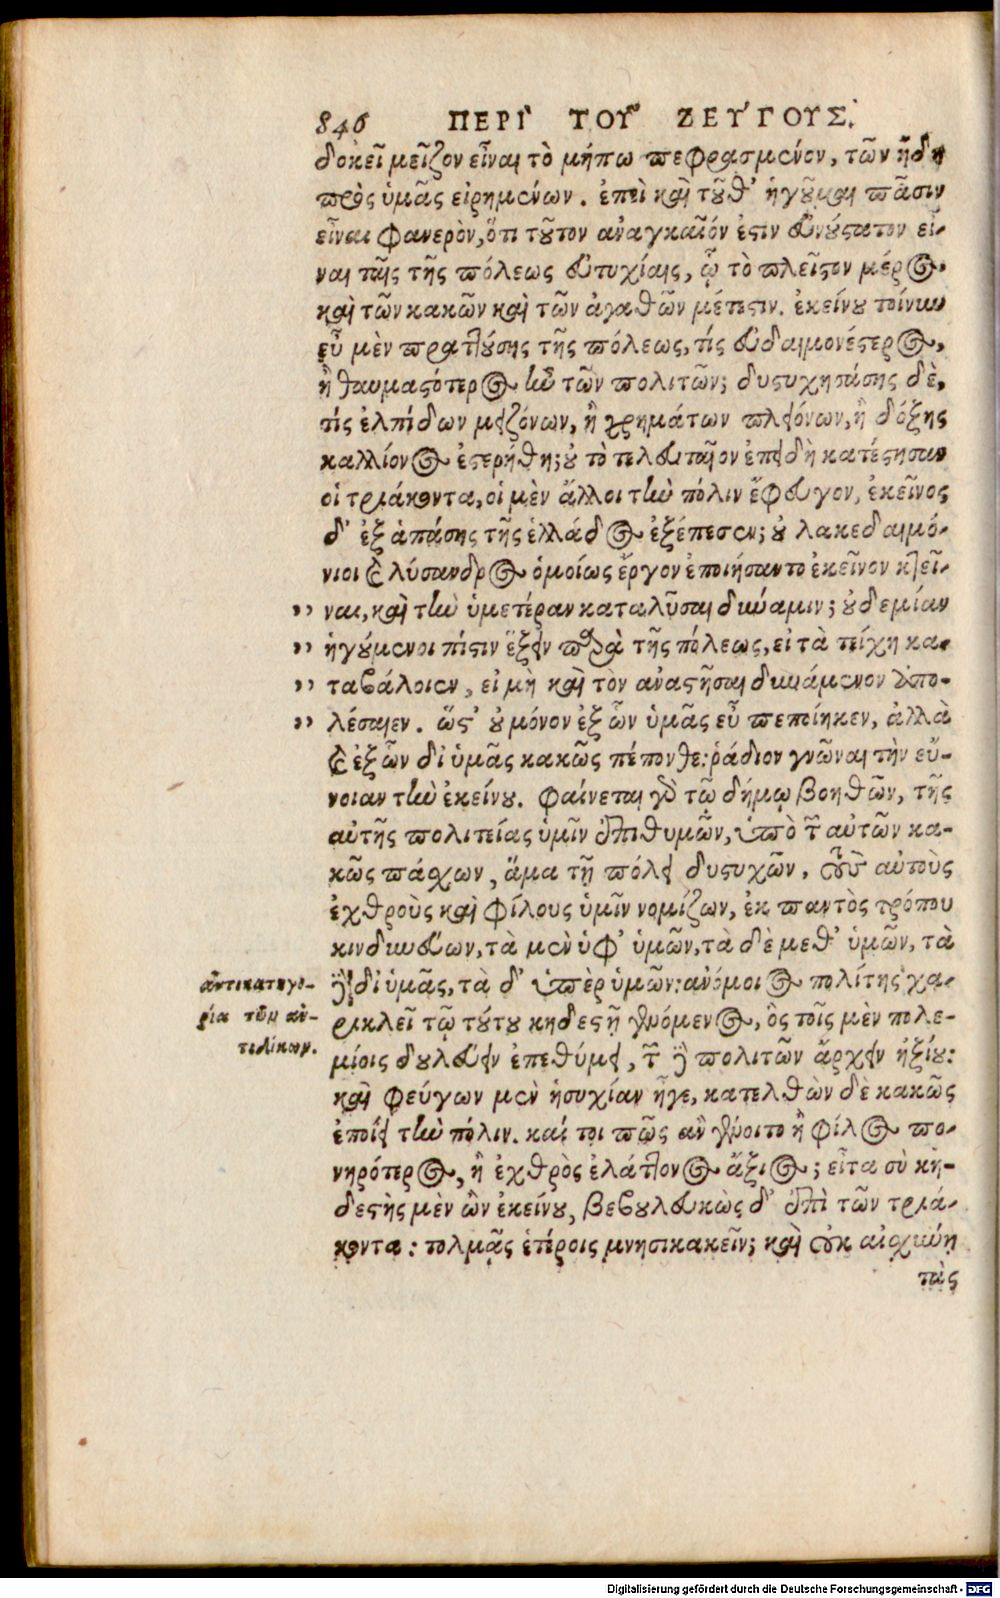 846 ΠΕΡΙ` ΤΟΥ͂ ΖΕΥ´ΓΟΥΣ.
δοκεῖ μεῖζον εἶναι τὸ μήπω πεφρασμένον, τῶν ἤδη
πρὸς ὑμᾶς εἰρημένων. ἐπεὶ καὶ τοῦθ' ἡγοῦμαι πᾶσιν
εἶναι φανερὸν, ὅτι τοῦτον ἀναγκαῖόν ἐστιν εὐνούστατον εἶ-
ναι ταῖς τῆς πόλεως εὐτυχίαις, ᾧ τὸ πλεῖστον μέρος
καὶ τῶν κακῶν καὶ τῶν ἀγαθῶν μέτεστιν. ἐκείνου τοίνυν
εὖ μὲν πραττούσης τῆς πόλεως, τίς εὐδαιμονέστερος,
ἢ θαυμαστότερος ἦν τῶν πολιτῶν; δυστυχησάσης δὲ,
τίς ἐλπίδων μειζόνων, ἢ χρημάτων πλειόνων, ἢ δόξης
καλλίονος ἐστερήθη; οὐ τὸ τελευταῖον ἐπειδὴ κατέστησαν
οἱ τριάκοντα, οἱ μὲν ἄλλοι τὴν πόλιν ἔφευγον, ἐκεῖνος
δ' ἐξ ἁπάσης τῆς ἑλλάδος ἐξέπεσεν; οὐ λακεδαιμό-
νιοι καὶ λύσανδρος ὁμοίως ἔργον ἐποιήσαντο ἐκεῖνον κτεῖ-
,, ναι, καὶ τὴν ὑμετέραν καταλῦσαι δύναμιν; οὐδεμίαν
,, ἡγούμενοι πίστιν ἕξειν παρὰ τῆς πόλεως, εἰ τὰ τείχη κα-
,, ταβάλοιεν, εἰ μὴ καὶ τὸν ἀναστῆσαι δυνάμενον ἀπο-
,, λέσαιεν. ὥστ' οὐ μόνον ἐξ ὧν ὑμᾶς εὖ πεποίηκεν, ἀλλὰ
καὶ ἐξ ὧν δι' ὑμᾶς κακῶς πέπονθε: ῥάδιον γνῶναι τὴν εὔ-
νοιαν τὴν ἐκείνου. φαίνεται γὰρ τῷ δήμῳ βοηθῶν, τῆς
αὐτῆς πολιτείας ὑμῖν ἐπιθυμῶν, ὑπὸ τῶν αὐτῶν κα-
κῶς πάσχων, ἅμα τῇ πόλει δυστυχῶν, τοὺς αὐτοὺς
ἐχθροὺς καὶ φίλους ὑμῖν νομίζων, ἐκ παντὸς τρόπου
κινδυνεύων, τὰ μὲν ὑφ' ὑμῶν, τὰ δὲ μεθ' ὑμῶν, τὰ
ἀντικατηγο- δὲ δι' ὑμᾶς, τὰ δ' ὑπὲρ ὑμῶν: ἀνόμοιος πολίτης χα-
ρία τῶν ἀν- ρικλεῖ τῷ τούτου κηδεστῇ γενόμενος, ὃς τοῖς μὲν πολε-
τιδίκων. μίοις δουλεύειν ἐπεθύμει, τῶν δὲ πολιτῶν ἄρχειν ἠξίου:
καὶ φεύγων μὲν ἡσυχίαν ἦγε, κατελθὼν δὲ κακῶς
ἐποίει τὴν πόλιν. καί τοι πῶς ἂν γένοιτο ἢ φίλος πο-
νηρότερος, ἢ ἐχθρὸς ἐλάττονος ἄξιος; εἶτα σὺ κη-
δεστὴς μὲν ὢν ἐκείνου, βεβουλευκὼς δ' ἐπὶ τῶν τριά-
κοντα: τολμᾷς ἑτέροις μνησικακεῖν; καὶ οὐκ αἰσχύνῃ
τὰς
Digitalisierung gefördert durch die Deutsche Forschungsgemeinschaft - DFG